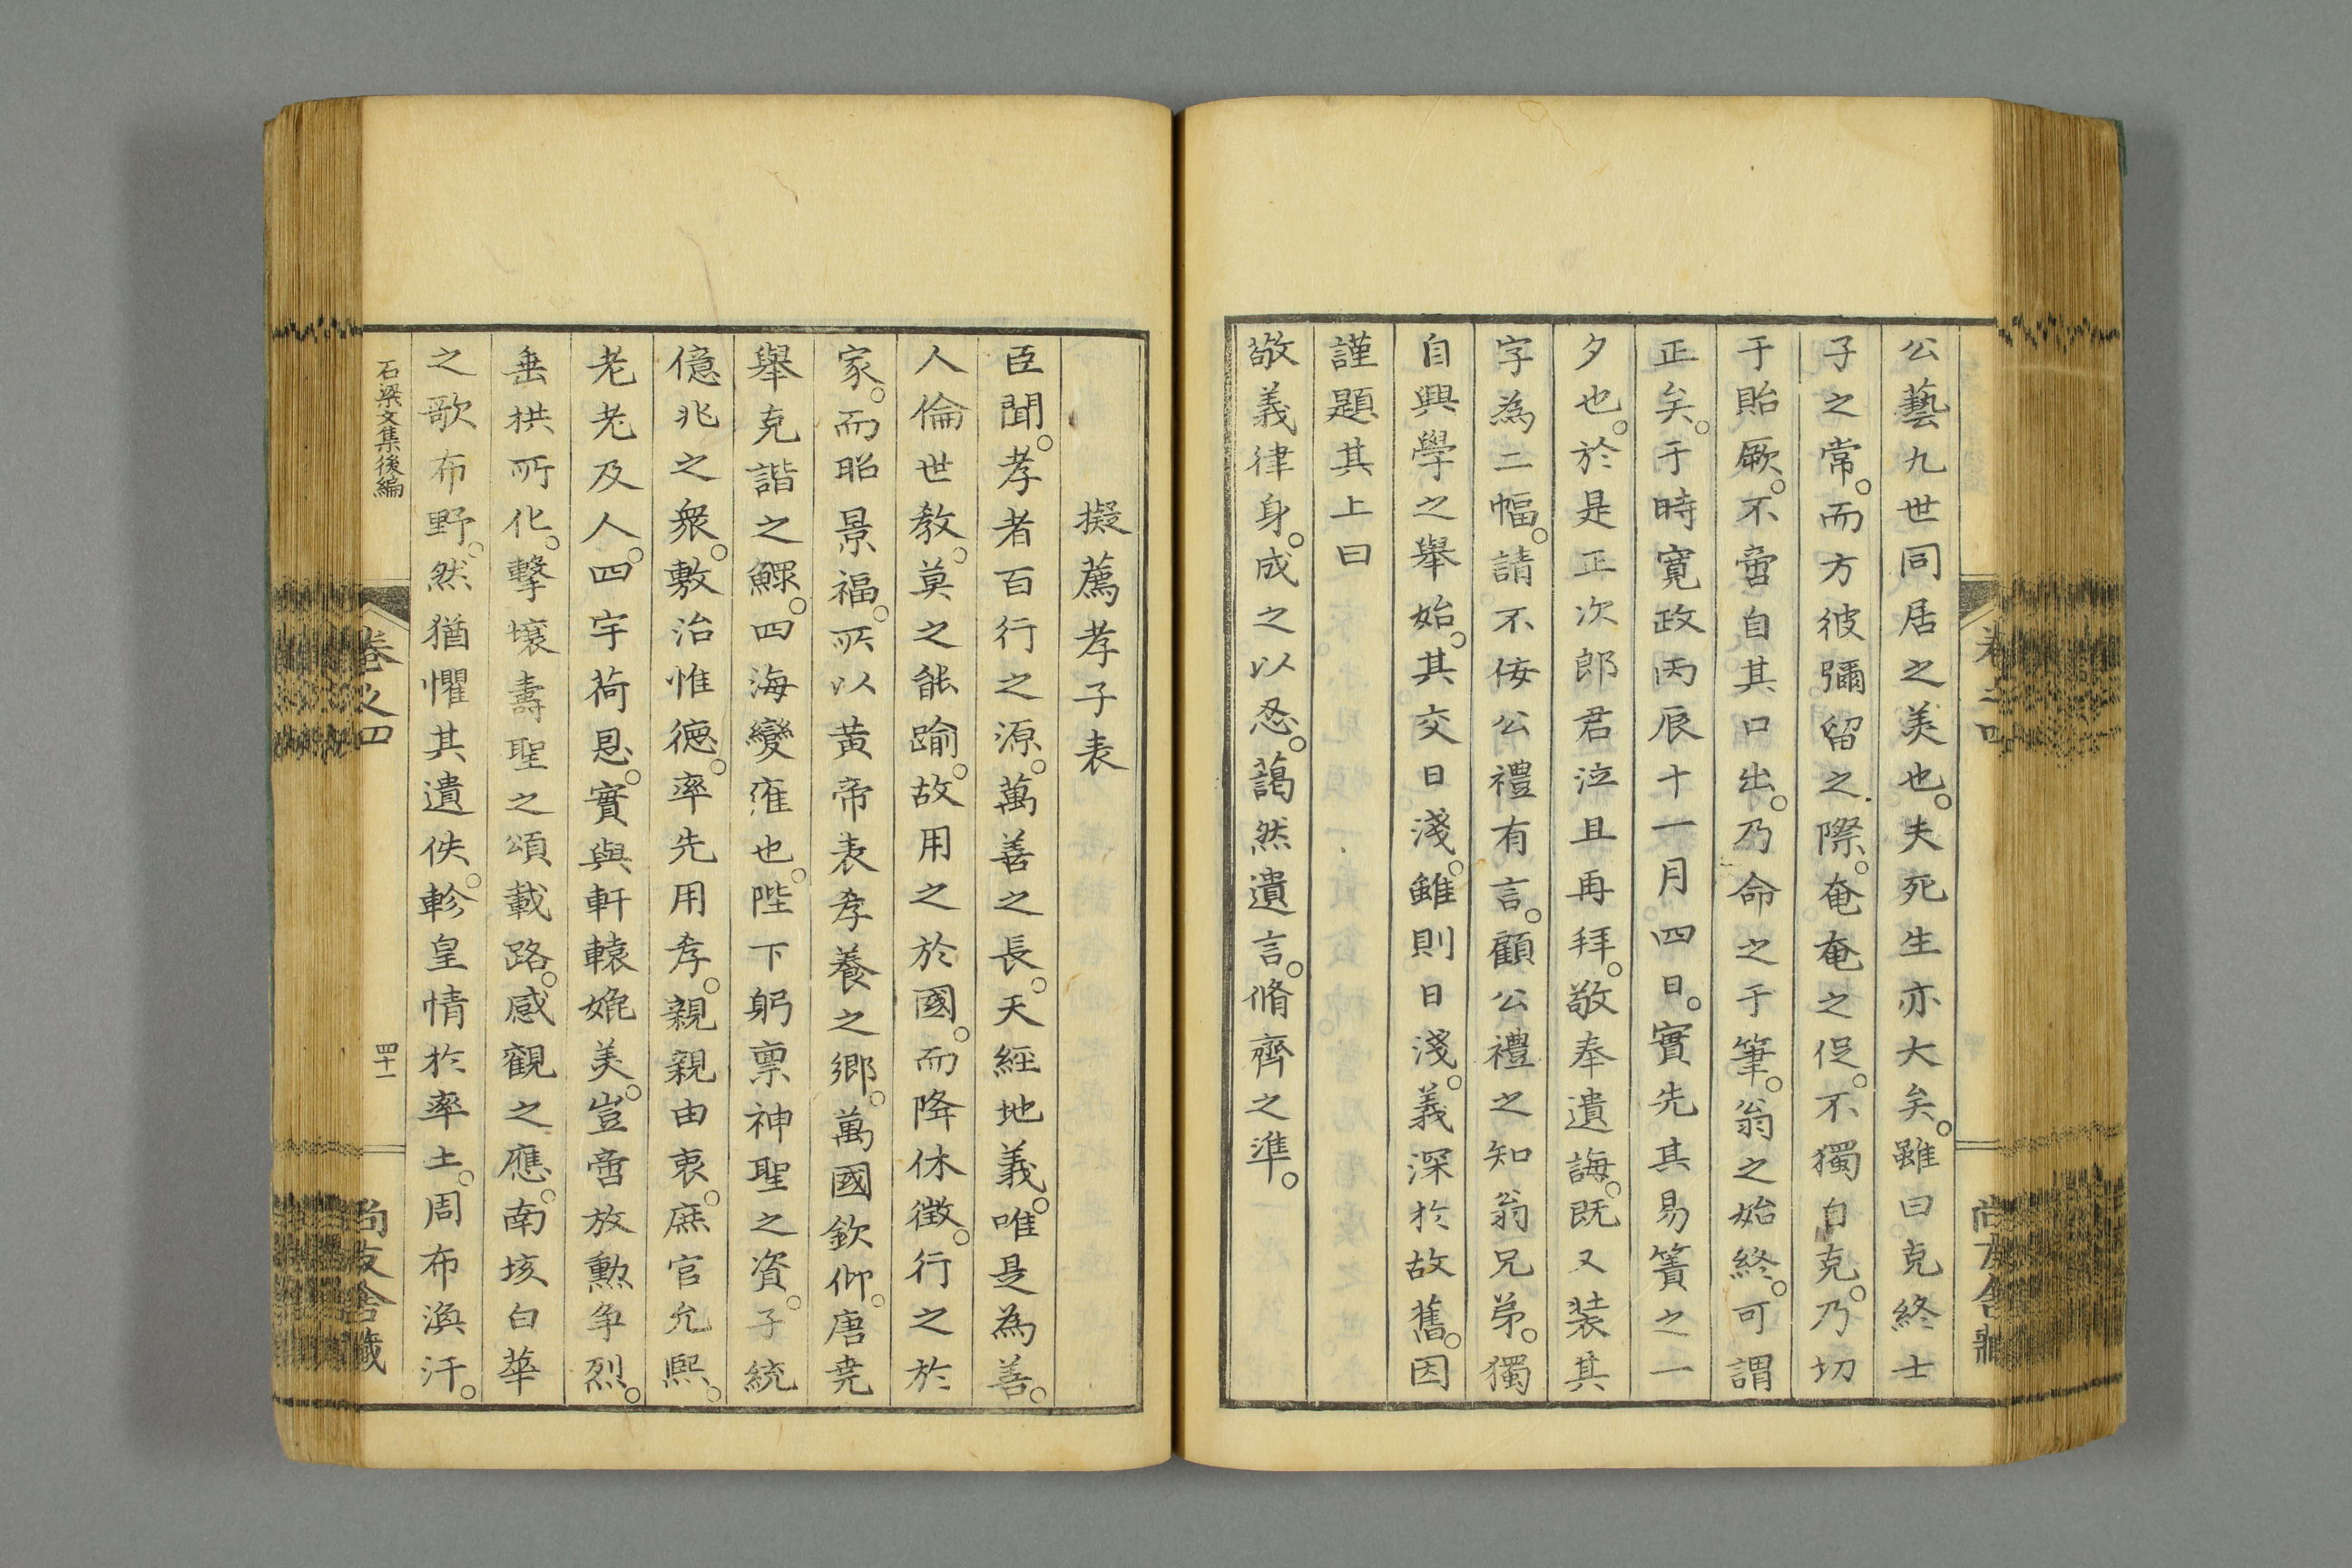 公藝九世同居之美也。夫死生亦大矣。雖曰克終士
子之常。而方彼彌留之際。奄奄之促。不獨自克。乃切
于貽厥。不啻自其口出。乃命之于筆。翁之始終。可謂
正矣。于時寛政丙辰十一月四日。實先其易簀之一
夕也。於是正次郎君泣且再拜。敬奉遺誨。既又装其
字為二幅。請不佞公禮有言。顧公禮之知翁兄弟。獨
自興學之舉始。其交日淺。雖則日淺。義深於故舊。因
謹題其上曰
敬義律身。成之以忍。藹然遺言。脩齊之準。
擬薦孝子表
臣聞。孝者百行之源。萬善之長。天經地義。唯是為善。
人倫世教。莫之能踰。故用之於國。而降休徴。行之於
家。而昭景福。所以黃帝表孝養之鄉。萬國欽仰。唐尭
舉克諧之鰥。四海變雍也。陛下躬禀神聖之資。子統
億兆之衆。敷治惟德。率先用孝。親親由衷。庶官允熙。
老老及人。四宇荷恩。實與軒轅媲美。豈啻放勲争烈。
垂拱所化。擊壤壽聖之頌載路。感觀之應。南垓白華
之歌布野。然猶懼其遺佚。軫皇情於率土。周布渙汗。
石梁文集後編
卷之四
四十一
尚友舎藏